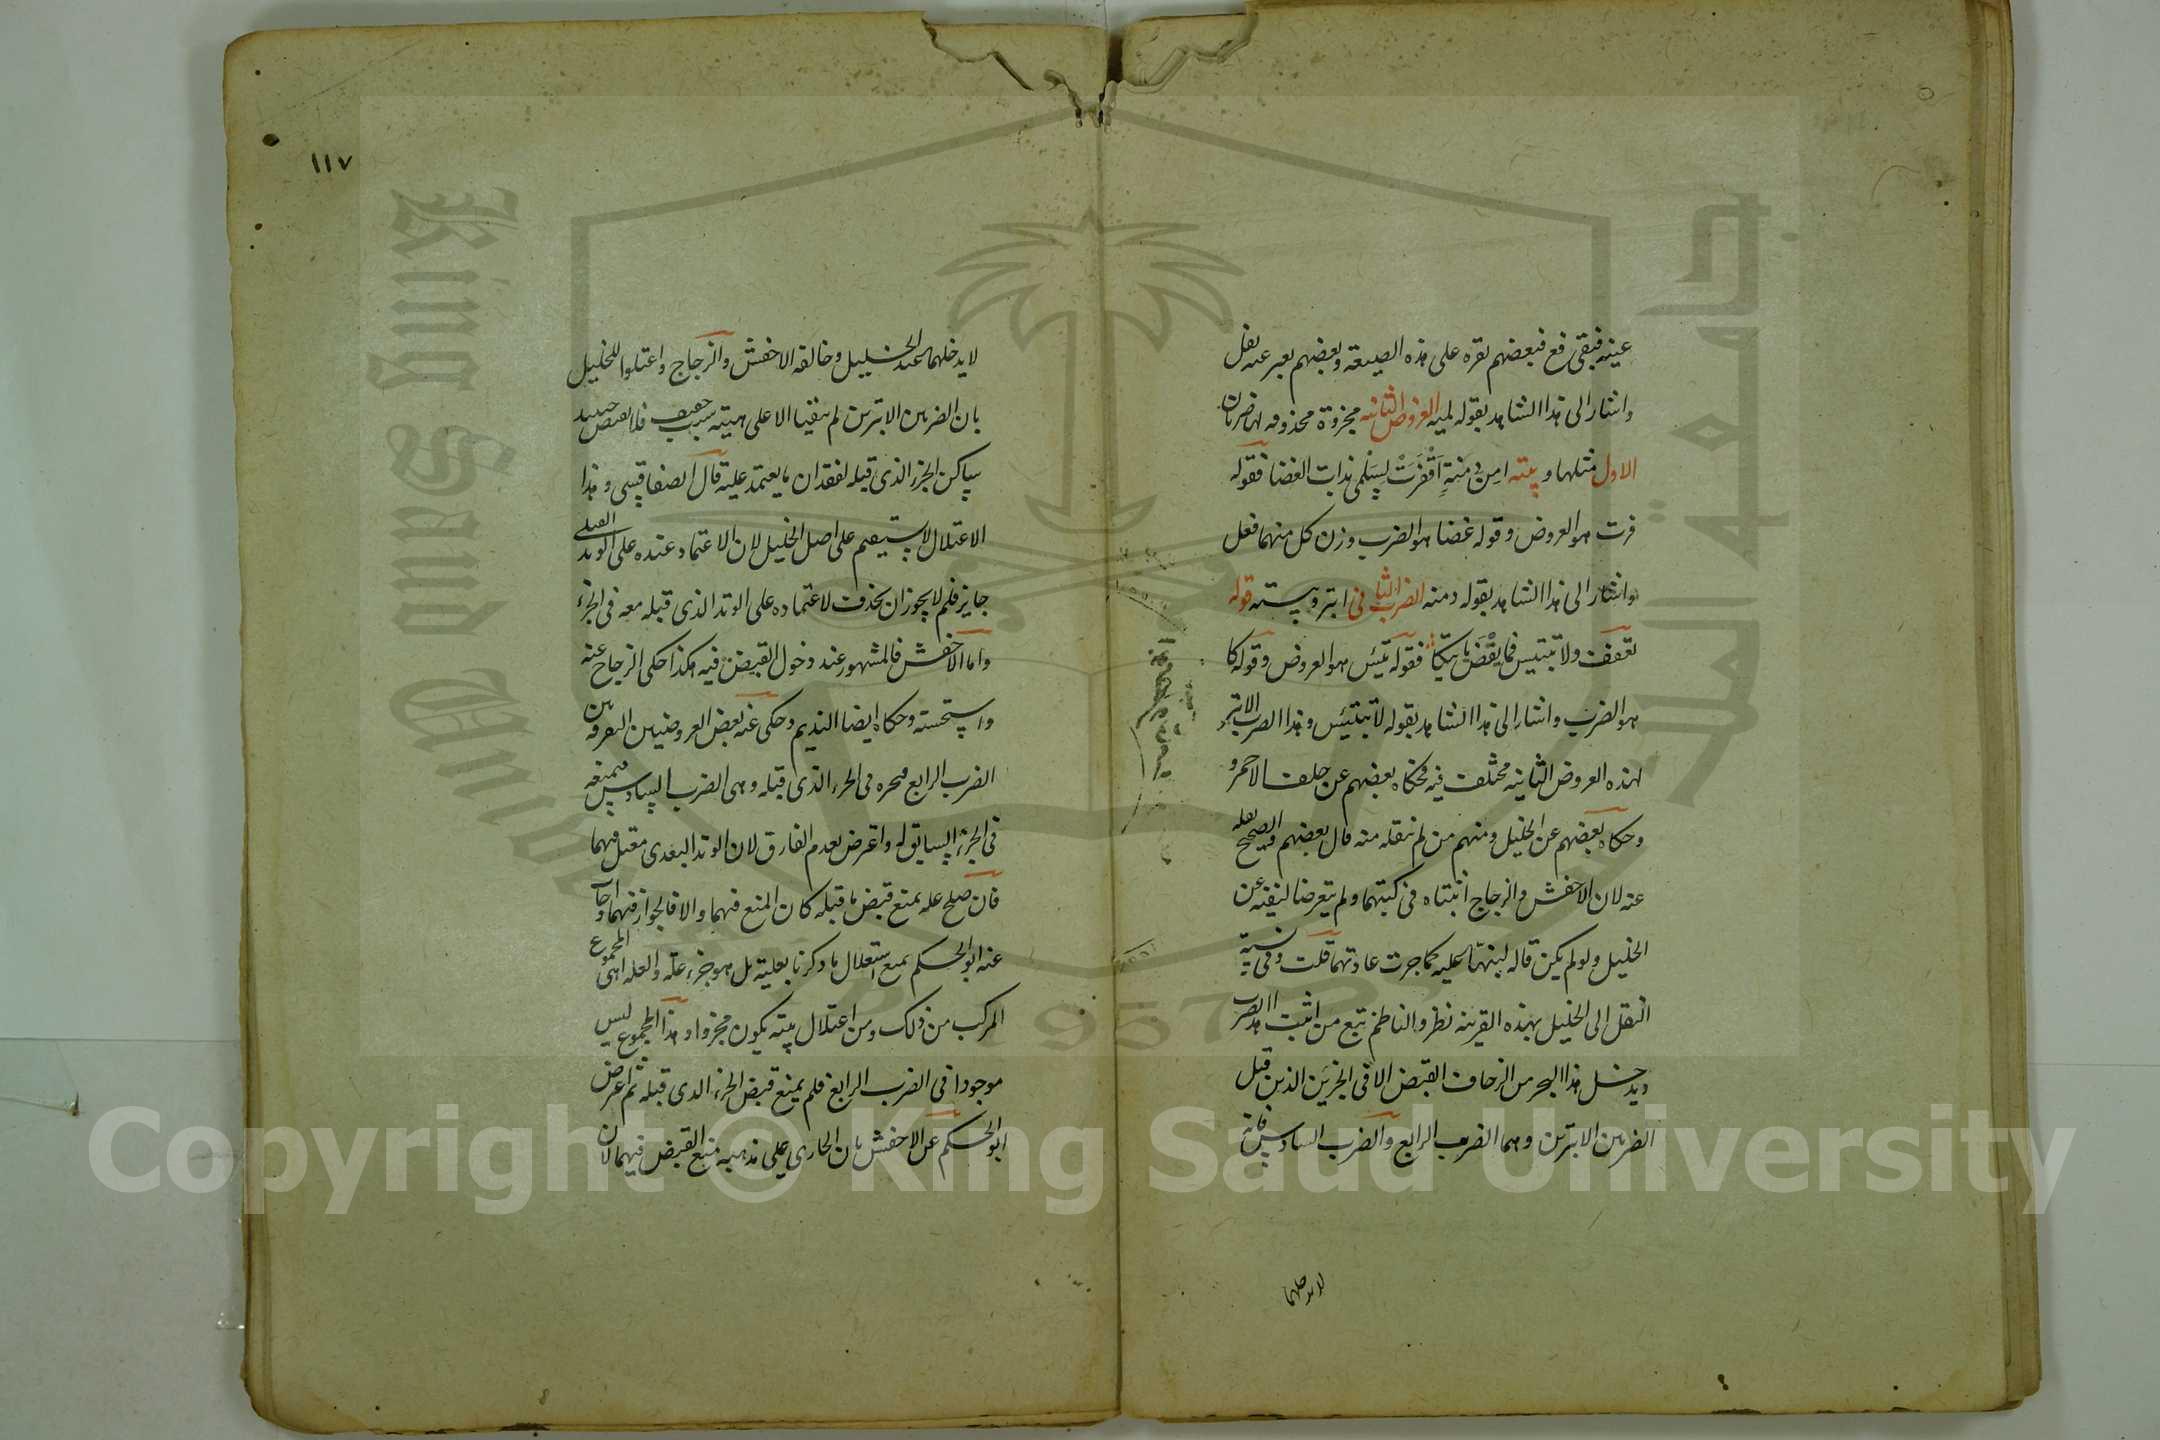 عينه فيبقى فع فبعضهم يقره على هذه الصيغة وبعضهم يعبر عنه بفل
واشار الى هذا الشاهد بقوله لميه العروض الثانيه مجزوة محذوفه لها ضربان
الاول مثلها وبيته امن دمنة اقفرت لسلمى بذات الغضا فقوله
فرت هو العروض وقوله غضا هو الضرب وزن كل منهما فعل
واشار الى هذا الشاهد بقوله دمنه الضرب الثاني ابتر وبيته قوله
تعفف ولا تبتيس فما يقض ياتيكا فقوله تيس هو العروض وقوله كا
هو الضرب واشار الى هذا الشاهد بقوله لا تبتيس وهذا الضرب الابتر
لهذه العروض الثانيه مختلف فيه فحكاه بعضهم عن خلف الاحمر و
وحكاه بعضهم عن الخليل ومنهم من لم ينقله منه قال بعضهم والصحيح نقله
عنه لان الاخفش والزجاج اثبتاه في كتبهما ولم يتعرضا لنفيه عن
الخليل ولو لم يكن قاله لنبها عليه كما جرت عادتهما قلت وفي نسبة
النقل الى الخليل بهذه القرينه نظر والناظم تبع من اثبت هذا الضرب
ويدخل هذا البحر من الزحاف القبض الا في الجزين الذين قبل
الضربين الابترين وهما الضرب الرابع والضرب السادس فانه
لا يدخلهما
١١٧
لا يدخلهما عند الخليل وخالفه الاخفش والزجاج واعتلوا للخليل
بان الضربين الابترين لم يبقيا الا على هيئة سبب خفيف فلا يقبض حينيد
ساكن الجزء الذي قبله لفقدان ما يعتمد عليه قال الصفاقسي وهذا
الاعتلال لا يستقيم على اصل الخليل لان الاعتماد عنده على الوتد القبلي
جايز فلم لا يجوز ان يحذف لاعتماده على الوتد الذي قبله معه في الجزء
واما الاخفش فالمشهور عند دخول القبض فيه هكذا حكى الزجاج عنه
واستحسنه وحكاه ايضا النديم وحكى عنه بعض العروضيين التفرقه بين
الضرب الرابع في الجزء الذي قبله وهى الضرب السادس فيمنعه
في الجزء السابق له واعترض بعدم الفارق لان الوتد البعدي معتل فيهما
فان صلح عله لمنع قبض ما قبله كان المنع فيهما والا فالجواز فيهما واجاب
عنه ابو الحكم بمنع استقلال ما ذكرنا بعليته بل هو جزء علة والعله هي المجموع
المركب من ذلك ومن اعتلال بيته بكون مجزوا وهذا المجموع ليس
موجودا في الضرب الرابع فلم يمنع قبض الجزء الذي قبله ثم اعترض
ابو الحكم عن الاخفش بان الجاري على مذهبه منع القبض فيهما لان
Copyright © King Saud University
King Saud University
جامعة الملك
1957